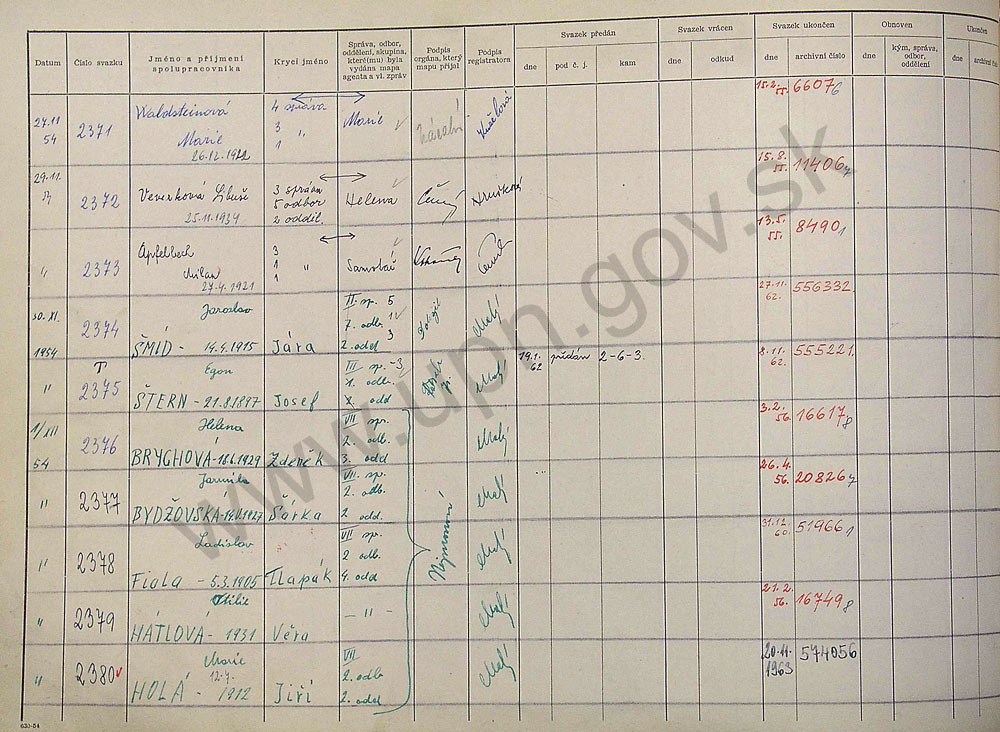 Datum
Číslo svazku
Jméno a příjmení spolupracovníka
Krycí jméno
Správa, odbor, oddělení, skupina, které(mu) byla vydána mapa agenta a vl. zpráv
Podpis orgána, který mapu přijal
Podpis registratora
Svazek předán
dne
pod č. j.
kam
Svazek vrácen
dne
odkud
Svazek ukončen
dne
archivní číslo
Obnoven
dne
kým, správa, odbor, oddělení
Ukončen
dne
27.11 54 2371 Waldsteinová 4 správa Marie 15.2. 55. 66076
Marie 3 "
26.12. 1
29.11. 2372 Veverková Libuše 3 správa Helena Černý Hrušková 15.8. 55. 114067
25.11.1934 5 odbor
2 oddíl.
" 2373 Apfelbech 3 13.5. 55. 84901
Milan 1 "
27.4.1921 1
30.XI. 1954 2374 Jaroslav II. sp. 5 Malý 27.11. 62. 556332
7. odb. 1
ŠMÍD - 14.4.1915 Jára 2. odd 3
" 2375 Egon III sp. -3, Malý 19.1. 62 předán 2-6-3. 8.11. 62. 555221
1. odb.
ŠTERN - 21.8.1897 Josef odd
1/XII 54 2376 Helena VII sp. Malý 3.2. 56. 166178
2. odb.
BRYCHOVÁ - 1929 Zdeněk 3. odd
" 2377 Jarmila VII. sp. Malý 26.4. 56. 208267
2. odb.
BYDŽOVSKÁ - 1927 Šárka 2. odd.
" 2378 Ladislav VII sp. Malý 31.12. 60. 519661
2 odb.
Fiala - 5.3.1905 Tlapák 4. odd
" 2379 Otilie - " - Malý 21.2. 56. 167498
HÁTLOVÁ - 1931 Věra
" 2380 Marie VII Malý 20.11. 1963 574056
12.7. 2. odb
HOLÁ - 1912 Jiří 2. odd
630-54
www.upn.gov.sk